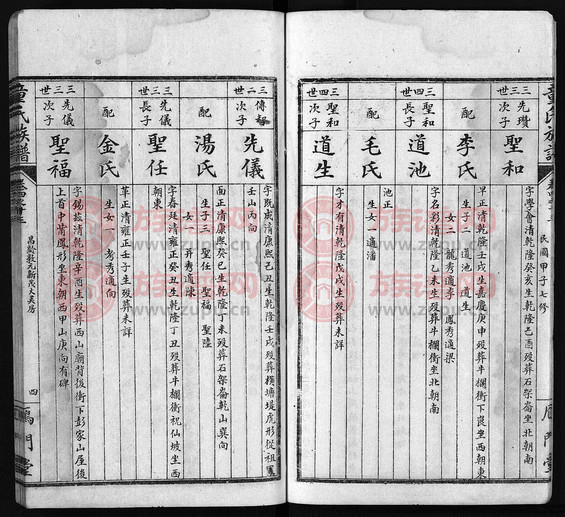 童氏族譜
民國甲子七修
三三世
先瓚次子
聖和
字學會清乾隆癸亥生乾隆己酉歿葬石架崙坐北朝南
配
李氏
早正清乾隆壬戌生嘉慶庚申歿葬牛欄衝下崀坐西朝東
生子二 道池 道生
女二 龍秀適李 鳳秀適梁
三四世
聖和長子
道池
字名彩清乾隆乙未生歿葬牛欄衝坐北朝南
配
毛氏
池正
生女一適潘
三四世
聖和次子
道生
字才有清乾隆戊戌生歿葬未詳
雁門堂
童氏族譜
三二世
次子
先儀
字既成清康熙己丑生乾隆壬戌歿葬橫塘堤虎形從祖
壬山丙向
配
湯氏
面正清康熙癸巳生乾隆丁未歿葬石架崙乾山巽向
生子三 聖任 聖福 聖陸
女一 并秀適諫
三三世
先儀長子
聖任
字春廷清雍正癸丑生乾隆丁丑歿葬牛欄衝祝仙坡坐西
朝東
配
金氏
華正清雍正壬子生歿葬未詳
生女一 考秀適向
三三世
先儀次子
聖福
字錫茲清乾隆辛酉生歿葬西山廟背後衝下彭家山屋後
上首中背鳳形坐東朝西甲山庚向有碑
四
雁門堂